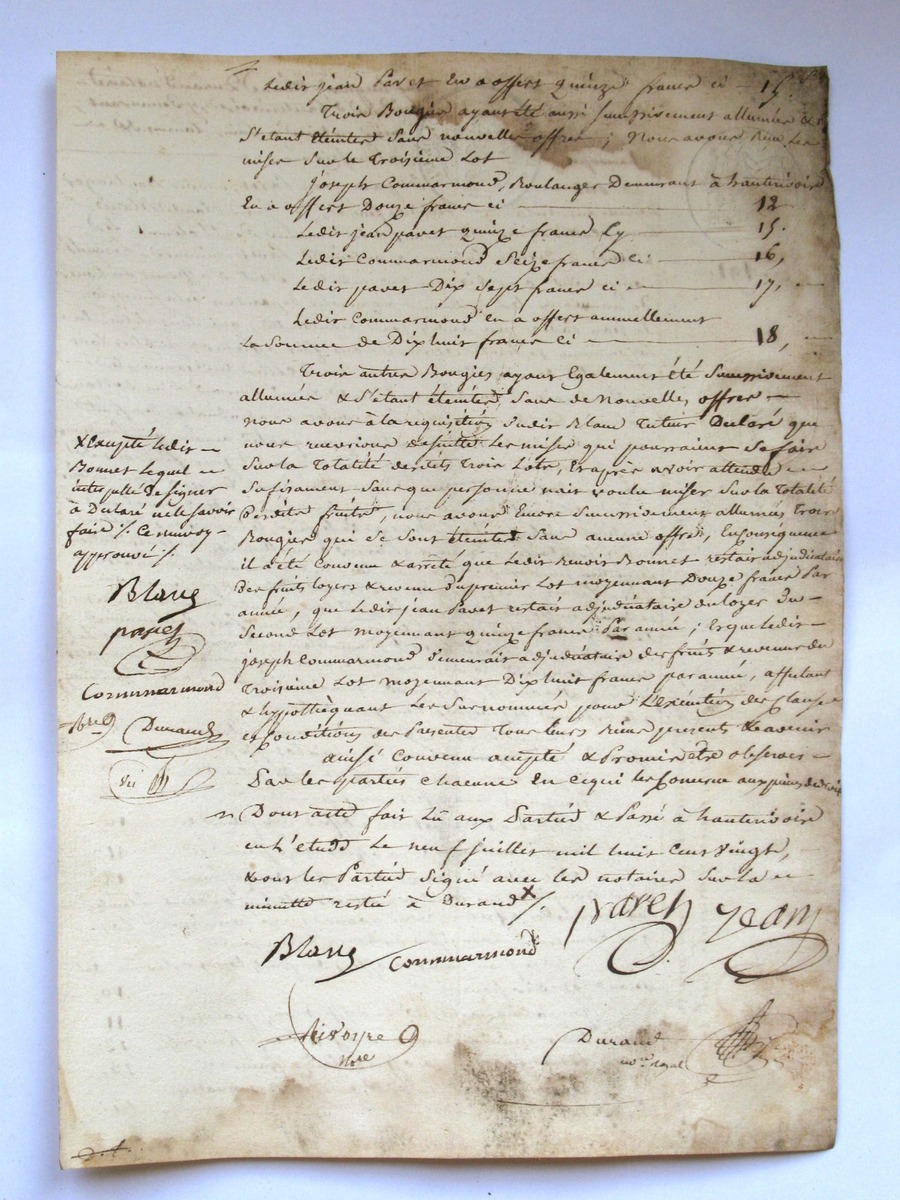 Ledit jean Pavet En a offert quinze francs ci — 15.
Trois Bougies ayant été aussi sucessivement allumées &
S'etant éteintes Sans nouvelles offres ; Nous avons Reçu les
mises Sur le Troisieme Lot
joseph Commarmond, Boulanger Demeurant à hauterivoire
En a offert Douze francs ci — 12
Ledit jean pavet quinze francs Cy — 15.
Ledit Commarmond Seize francs ci — 16,
Ledit pavet Dix Sept francs ci — 17,
Ledit Commarmond En a offert annuellement
La Somme de Dix huit francs Ci — 18,
Trois autres Bougies ayant Egalement été Sucessivement
allumées & S'etant éteintes, Sans de Nouvelles offres —
nous avons à la requisition dudit Blanc Tuteur Déclaré que
nous recevrions de suitte Les mises qui pourraient Se faire
Sur la Totalité desdits Trois Lots, Et après avoir attendu —
Sufisament Sans que personne n'ait voulu miser Sur la Totalité
Desdits fruits, nous avons Encore Sucessivement allumés trois
Bougies qui Se Sont éteintes Sans aucune offre, En conséquence
il a été Convenu & arrêté que Ledit Benoit Bonnet restait adjudicataire
Des fruits loyers & revenu du premier Lot moyennant Douze francs Par
année, que Ledit jean Pavet restait adjudicataire du loyer Du —
Second Lot moyennant quinze francs Par année ; Et que Ledit —
joseph Commarmond Demeurait adjudicataire des fruits & revenus du
Troisieme Lot moyennant Dix huit francs par année, affectant
& hypothèquant Les Surnommés pour L'Exécution des Clauses
et Conditions des Presentes Tous leurs Biens presents & avenir
ainsi Convenu accepté & Promis être observer —
Par les parties chacune En ce qui les Concerne aux peines de droit
Dont acte fait Lu aux Parties & Passé à hauterivoire
en L'etude Le neuf juillet mil huit Cent Vingt,
& ont les Parties Signé avec les notaires Sur la —
minutte restée à Durand X /.
X Excepté Ledit —
Bonnet Lequel —
interpellé De signer
à Déclaré ne le Savoir
faire /. Ce renvoy —
approuvé /.
Blanc
pavet
Commarmond
Nre
Durand
pavet jean
Blanc Commarmond
Nore
Durand
nore royal